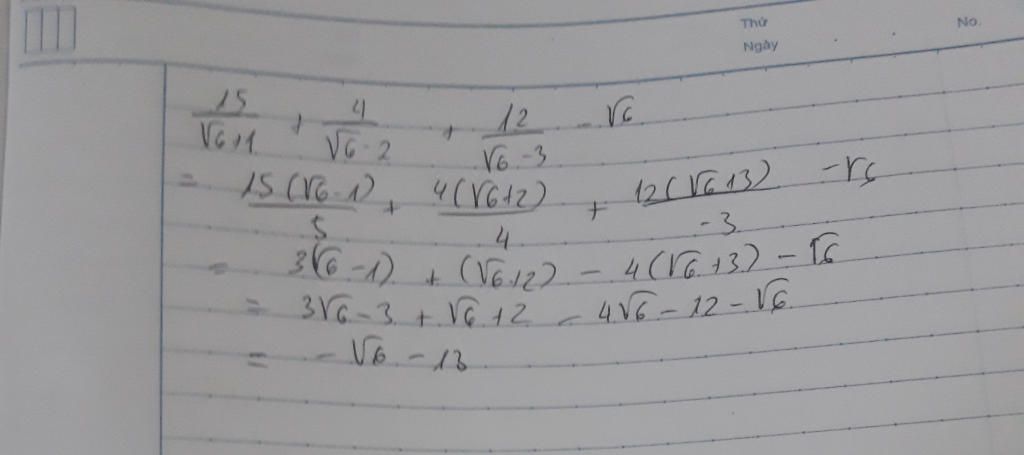 Thứ
No.
Ngày
15/(√6+1) + 4/(√6-2) + 12/(√6-3) - √6
= 15(√6-1)/5 + 4(√6+2)/4 + 12(√6+3)/-3 - √6
= 3(√6-1) + (√6+2) - 4(√6+3) - √6
= 3√6-3 + √6+2 - 4√6-12-√6
= -√6-13